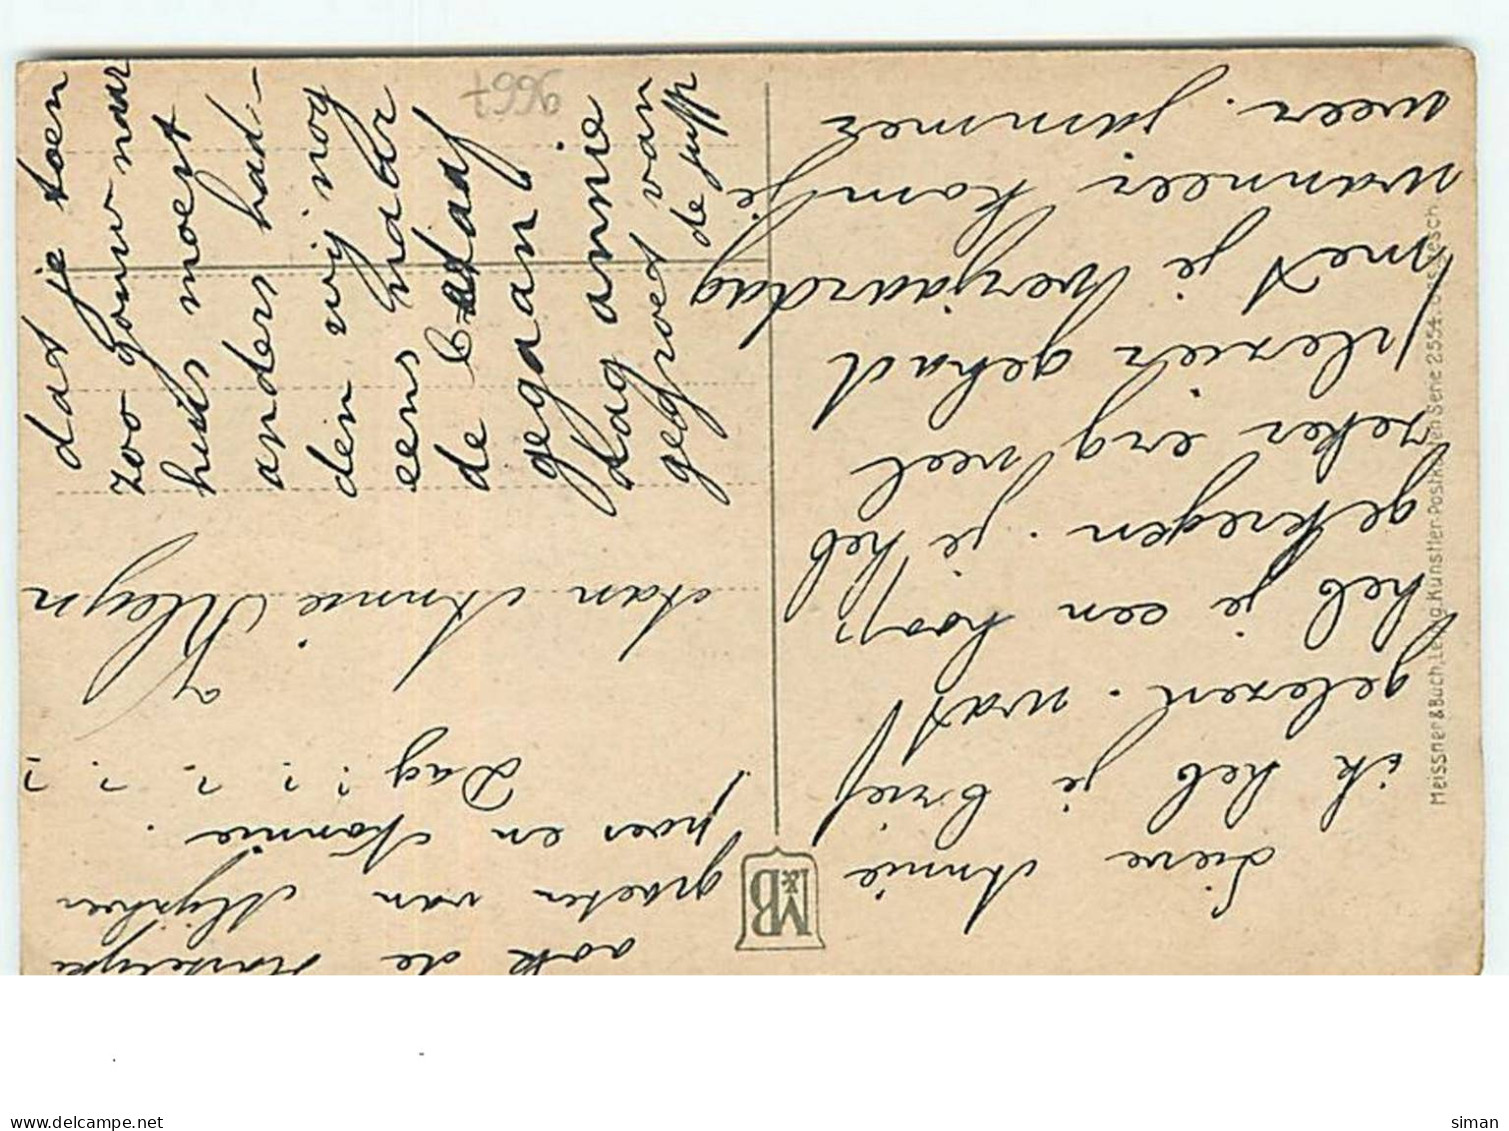 Lieve Annie
ik heb je brief
gelezen. wat
heb je een hoop
gekregen. je heb
zeker erg veel
plezier gehad
met je verjaardag
wanneer kom je
weer. jammer
dat je toen
zoo gouw naar
huis moest
anders had-
den wij nog
eens naar
de
gegaan
dag annie
gegroet van
de juffr
Aan Annie Kleyn
Dag ? ? ? ? ? ?
poes en Nonnie.
groeten van
ook de Hartelijke
9667
MB
Meissner & Buch, Leipzig. Künstler-Postkarten Serie 2554. Ges. Gesch.
www.delcampe.net
siman